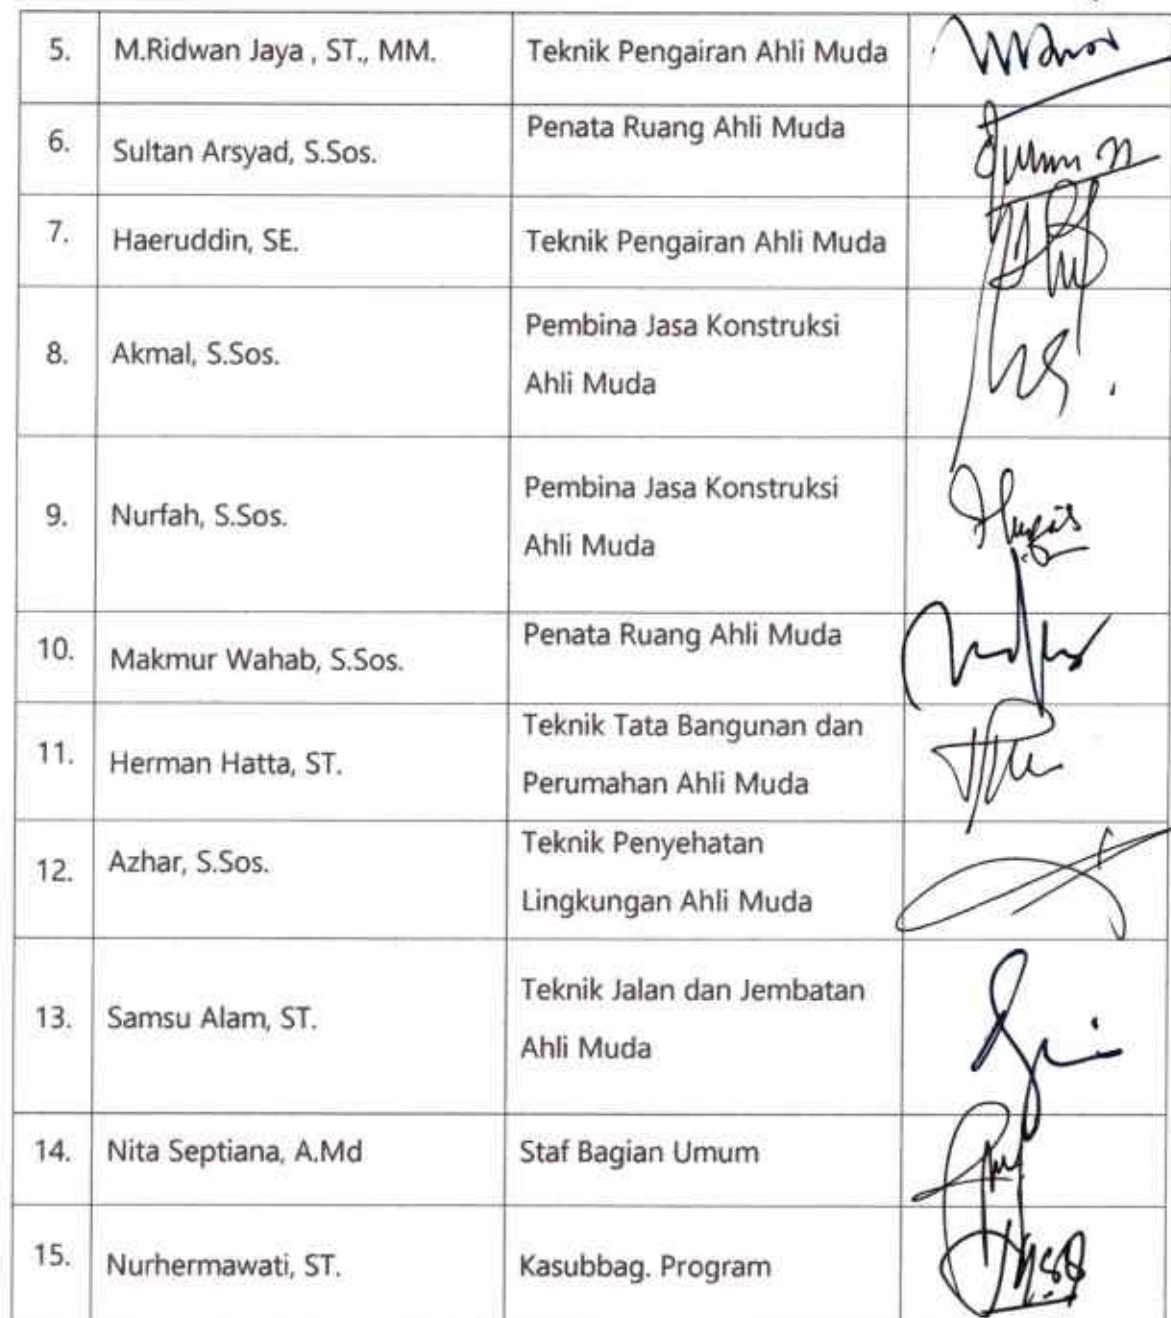 5. M.Ridwan Jaya , ST., MM. Teknik Pengairan Ahli Muda
6. Sultan Arsyad, S.Sos. Penata Ruang Ahli Muda
7. Haeruddin, SE. Teknik Pengairan Ahli Muda
8. Akmal, S.Sos. Pembina Jasa Konstruksi
Ahli Muda
9. Nurfah, S.Sos. Pembina Jasa Konstruksi
Ahli Muda
10. Makmur Wahab, S.Sos. Penata Ruang Ahli Muda
11. Herman Hatta, ST. Teknik Tata Bangunan dan
Perumahan Ahli Muda
12. Azhar, S.Sos. Teknik Penyehatan
Lingkungan Ahli Muda
13. Samsu Alam, ST. Teknik Jalan dan Jembatan
Ahli Muda
14. Nita Septiana, A.Md Staf Bagian Umum
15. Nurhermawati, ST. Kasubbag. Program